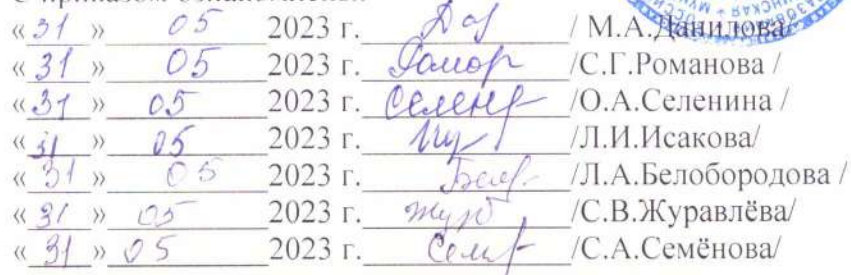 С приказом ознакомлены:
« 31 » 05 2023 г. / М.А.Данилова/
« 31 » 05 2023 г. /С.Г.Романова /
« 31 » 05 2023 г. /О.А.Селенина /
« 31 » 05 2023 г. /Л.И.Исакова/
« 31 » 05 2023 г. /Л.А.Белобородова /
« 31 » 05 2023 г. /С.В.Журавлёва/
« 31 » 05 2023 г. /С.А.Семёнова/